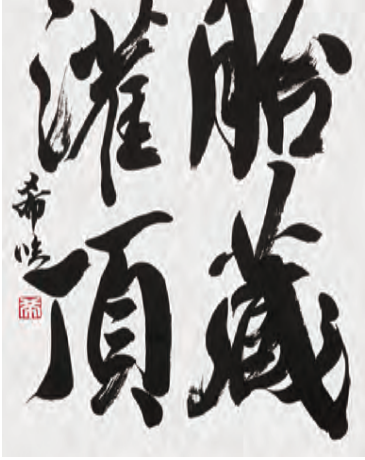 胎藏
灌頂
希